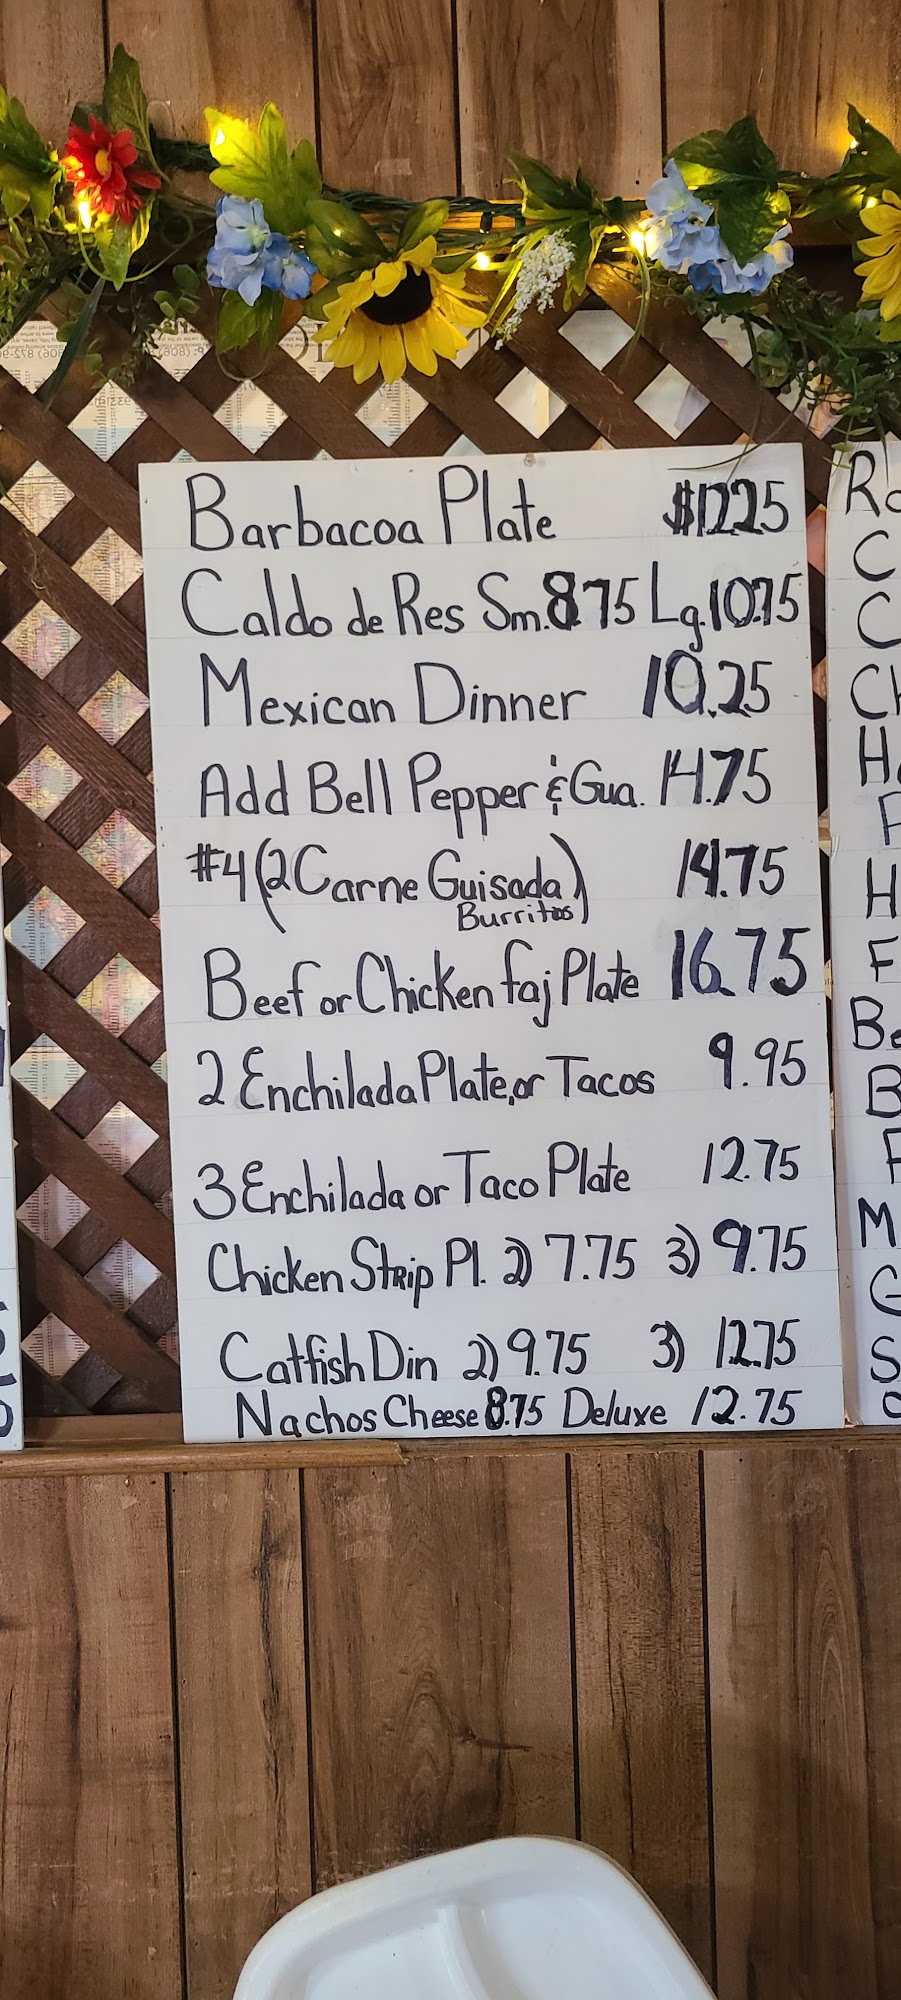 Barbacoa Plate $12.25
Caldo de Res Sm. 8.75 Lg. 10.75
Mexican Dinner 10.25
Add Bell Pepper & Gua. 14.75
#4 (2 Carne Guisada) 14.75
Burritos
Beef or Chicken faj Plate 16.75
2 Enchilada Plate, or Tacos 9.95
3 Enchilada or Taco Plate 12.75
Chicken Strip Pl. 2) 7.75 3) 9.75
Catfish Din 2) 9.75 3) 12.75
Nachos Cheese 8.75 Deluxe 12.75